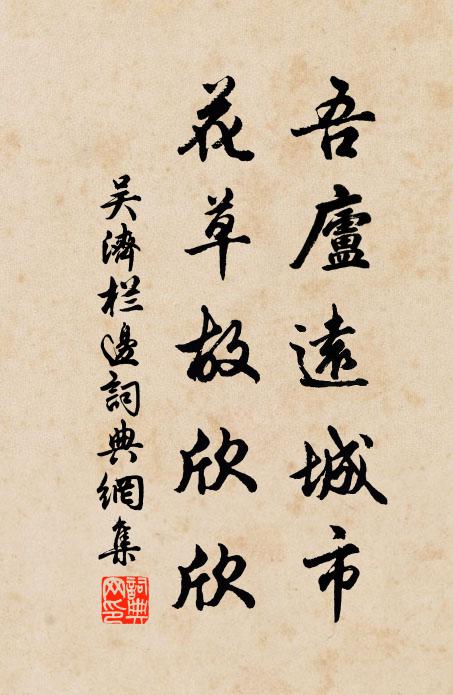 吾廬遠城市
花草故欣欣
吴濟栏邊詞典網集
詞典网印